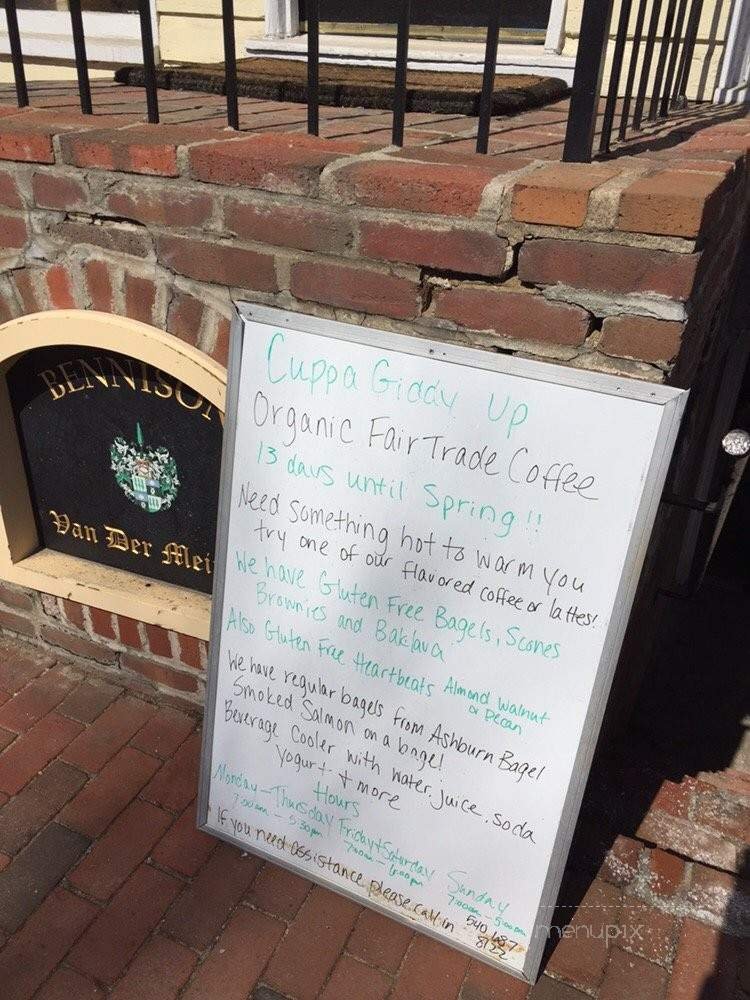 BENNISON
Van Der Mei
Cuppa Giddy Up
Organic Fair Trade Coffee
13 days until Spring!!
Need something hot to warm you
try one of our flavored coffee or lattes!
We have Gluten Free Bagels, Scones
Brownies and Baklava
Also Gluten Free Heartbeats Almond, Walnut
or Pecan
We have regular bagels from Ashburn Bagel
Smoked Salmon on a bagel!
Beverage Cooler with water, juice, soda
Yogurt + more
Hours
Monday - Thursday Friday + Saturday Sunday
7:00am - 5:30pm 7:00am - 6:00pm 7:00am - 5:00pm
If you need assistance please call in 540 687
8122
menupix